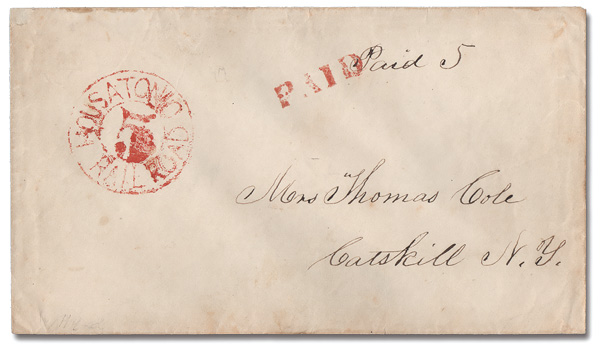 PAID
Paid 5
HOUSATONIC
5
RAILROAD
Mrs Thomas Cole
Catskill N.Y.